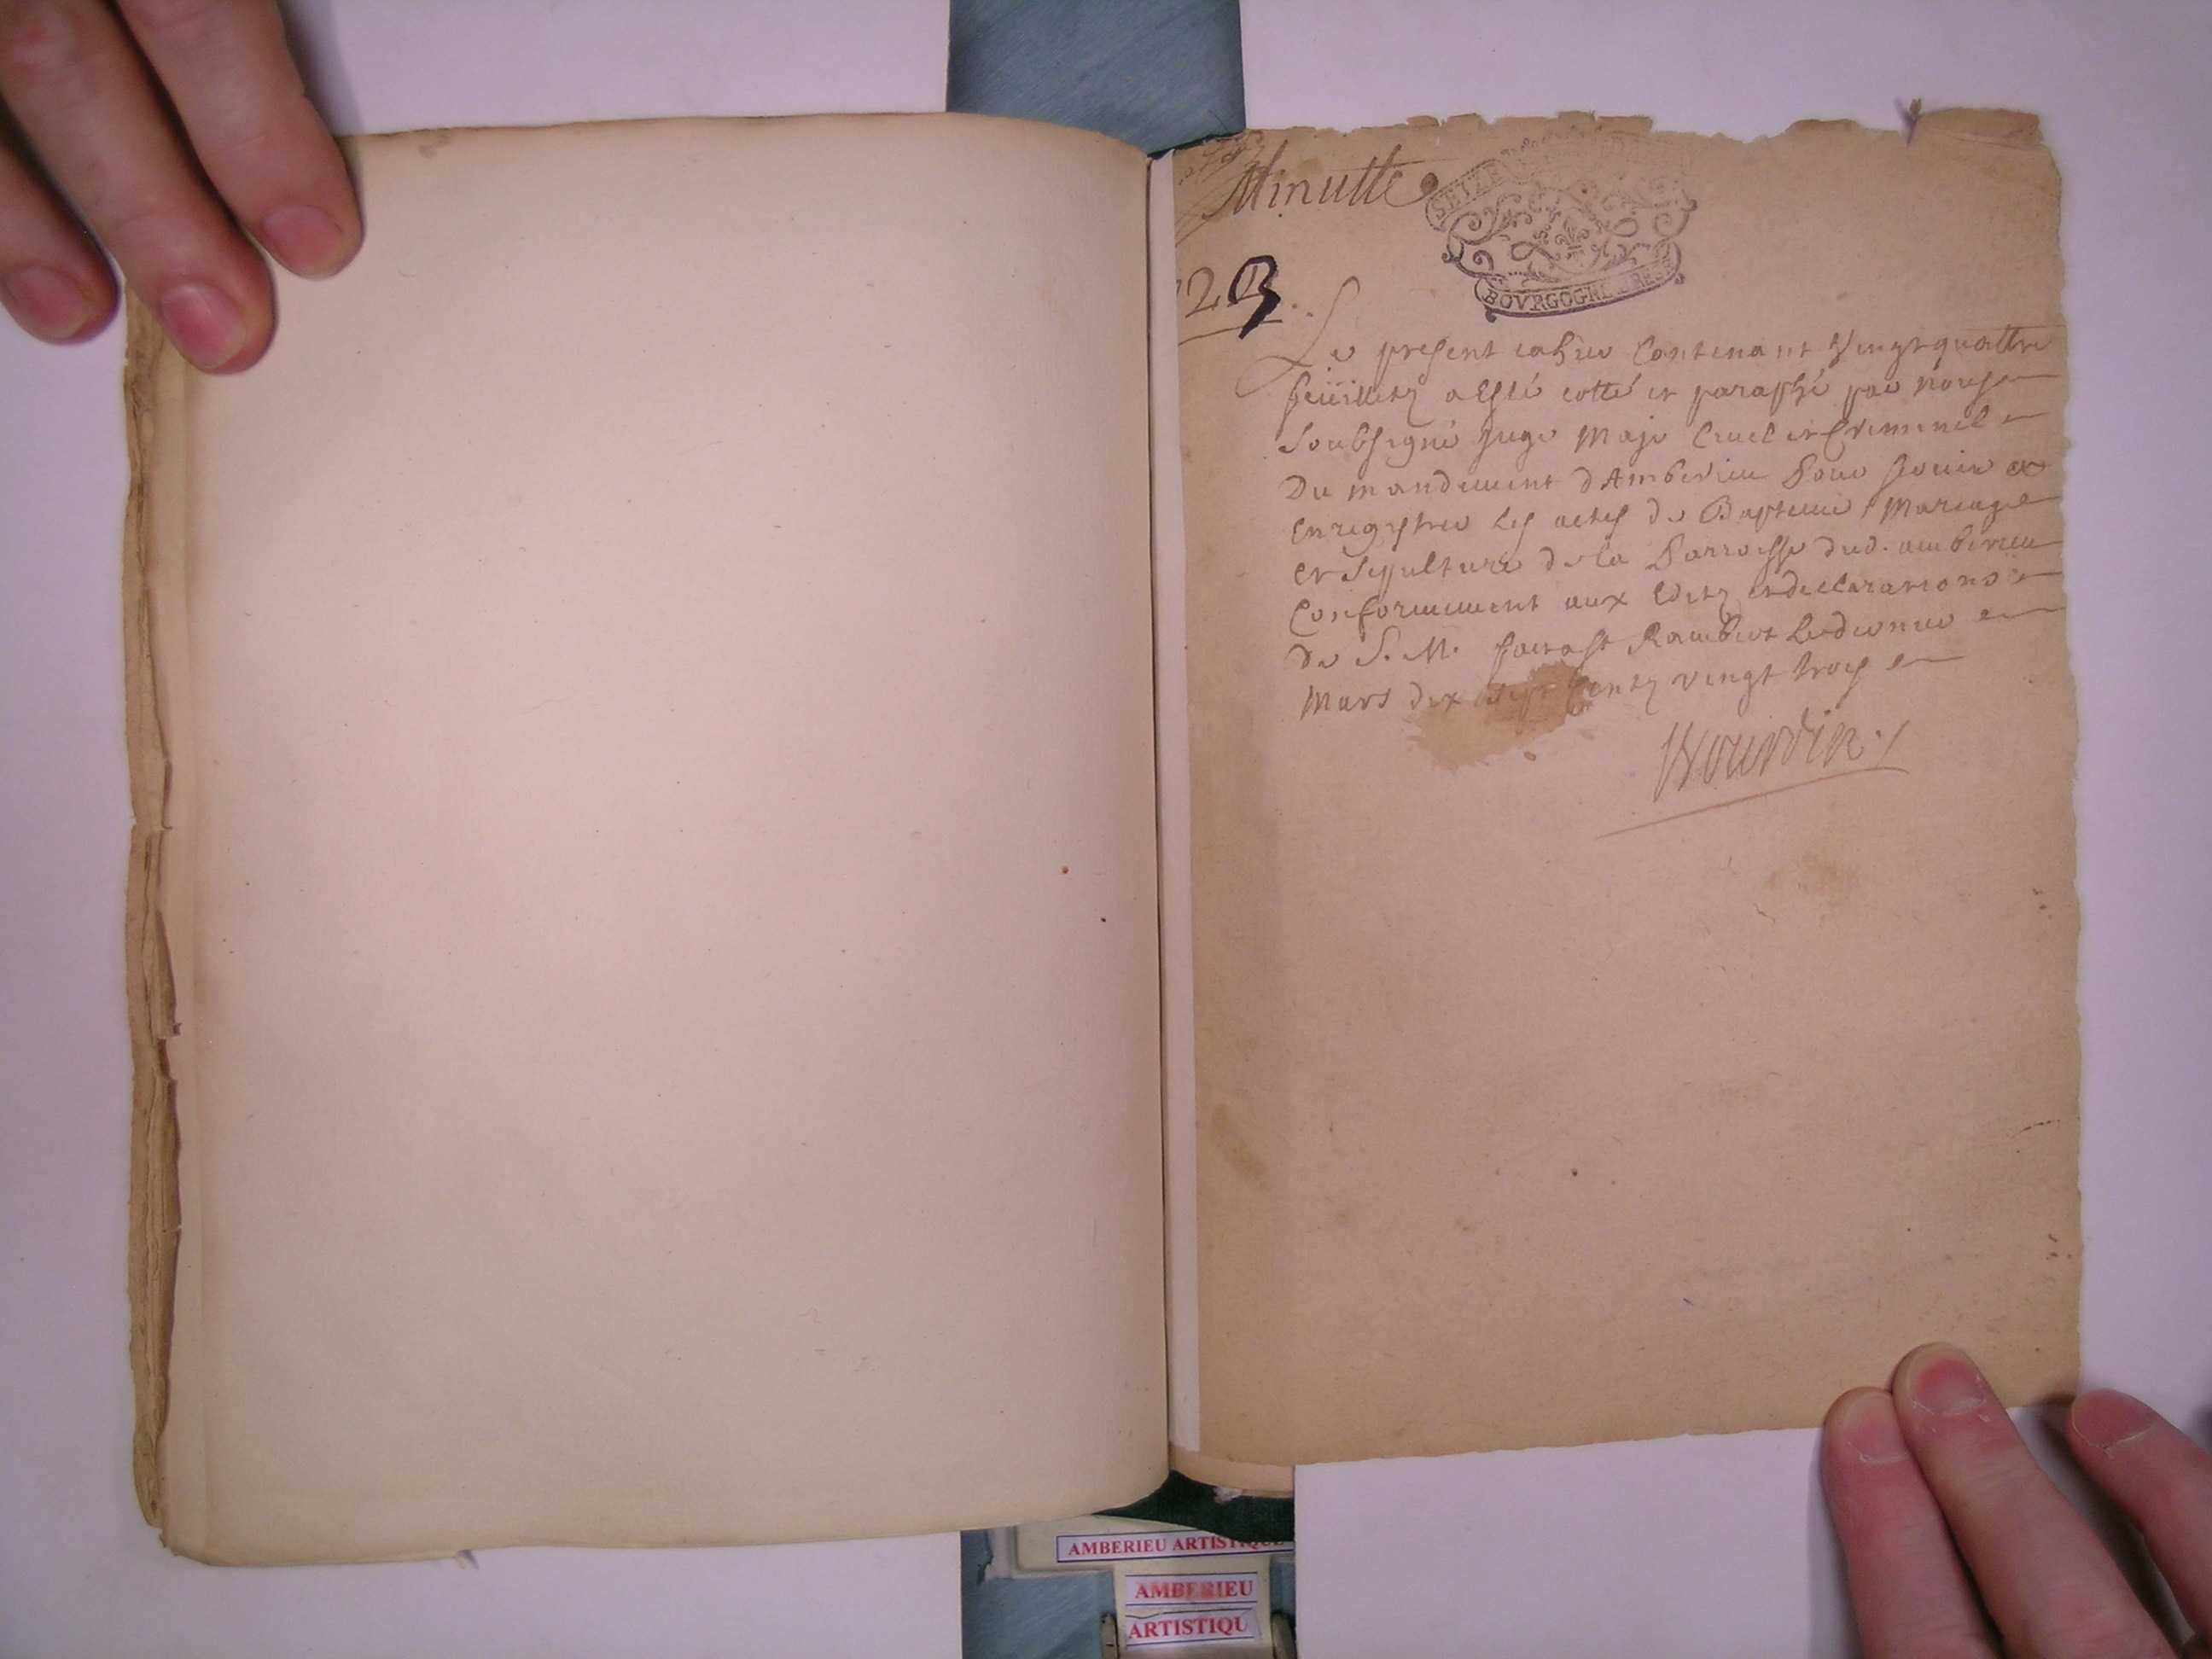 Minutte
SEIZE
BOVRGOGNE BRESSE
1723
Le present cahier Contenant Vingt quattre
feüilletz a Esté cotté et paraphé par nous
soubsigné Juge Maje Civel et Criminel
Du mandement d'Amberieu Pour servir a
Enregistrer les actes de Bapteme, Mariage
et sepulture de la Parroisse dud. amberieu
Conformement aux Editz et declarations
de S. M. fait a St Rambert le dernier
Mars dix sept Centz vingt trois
AMBERIEU ARTISTIQUE
AMBERIEU
ARTISTIQU